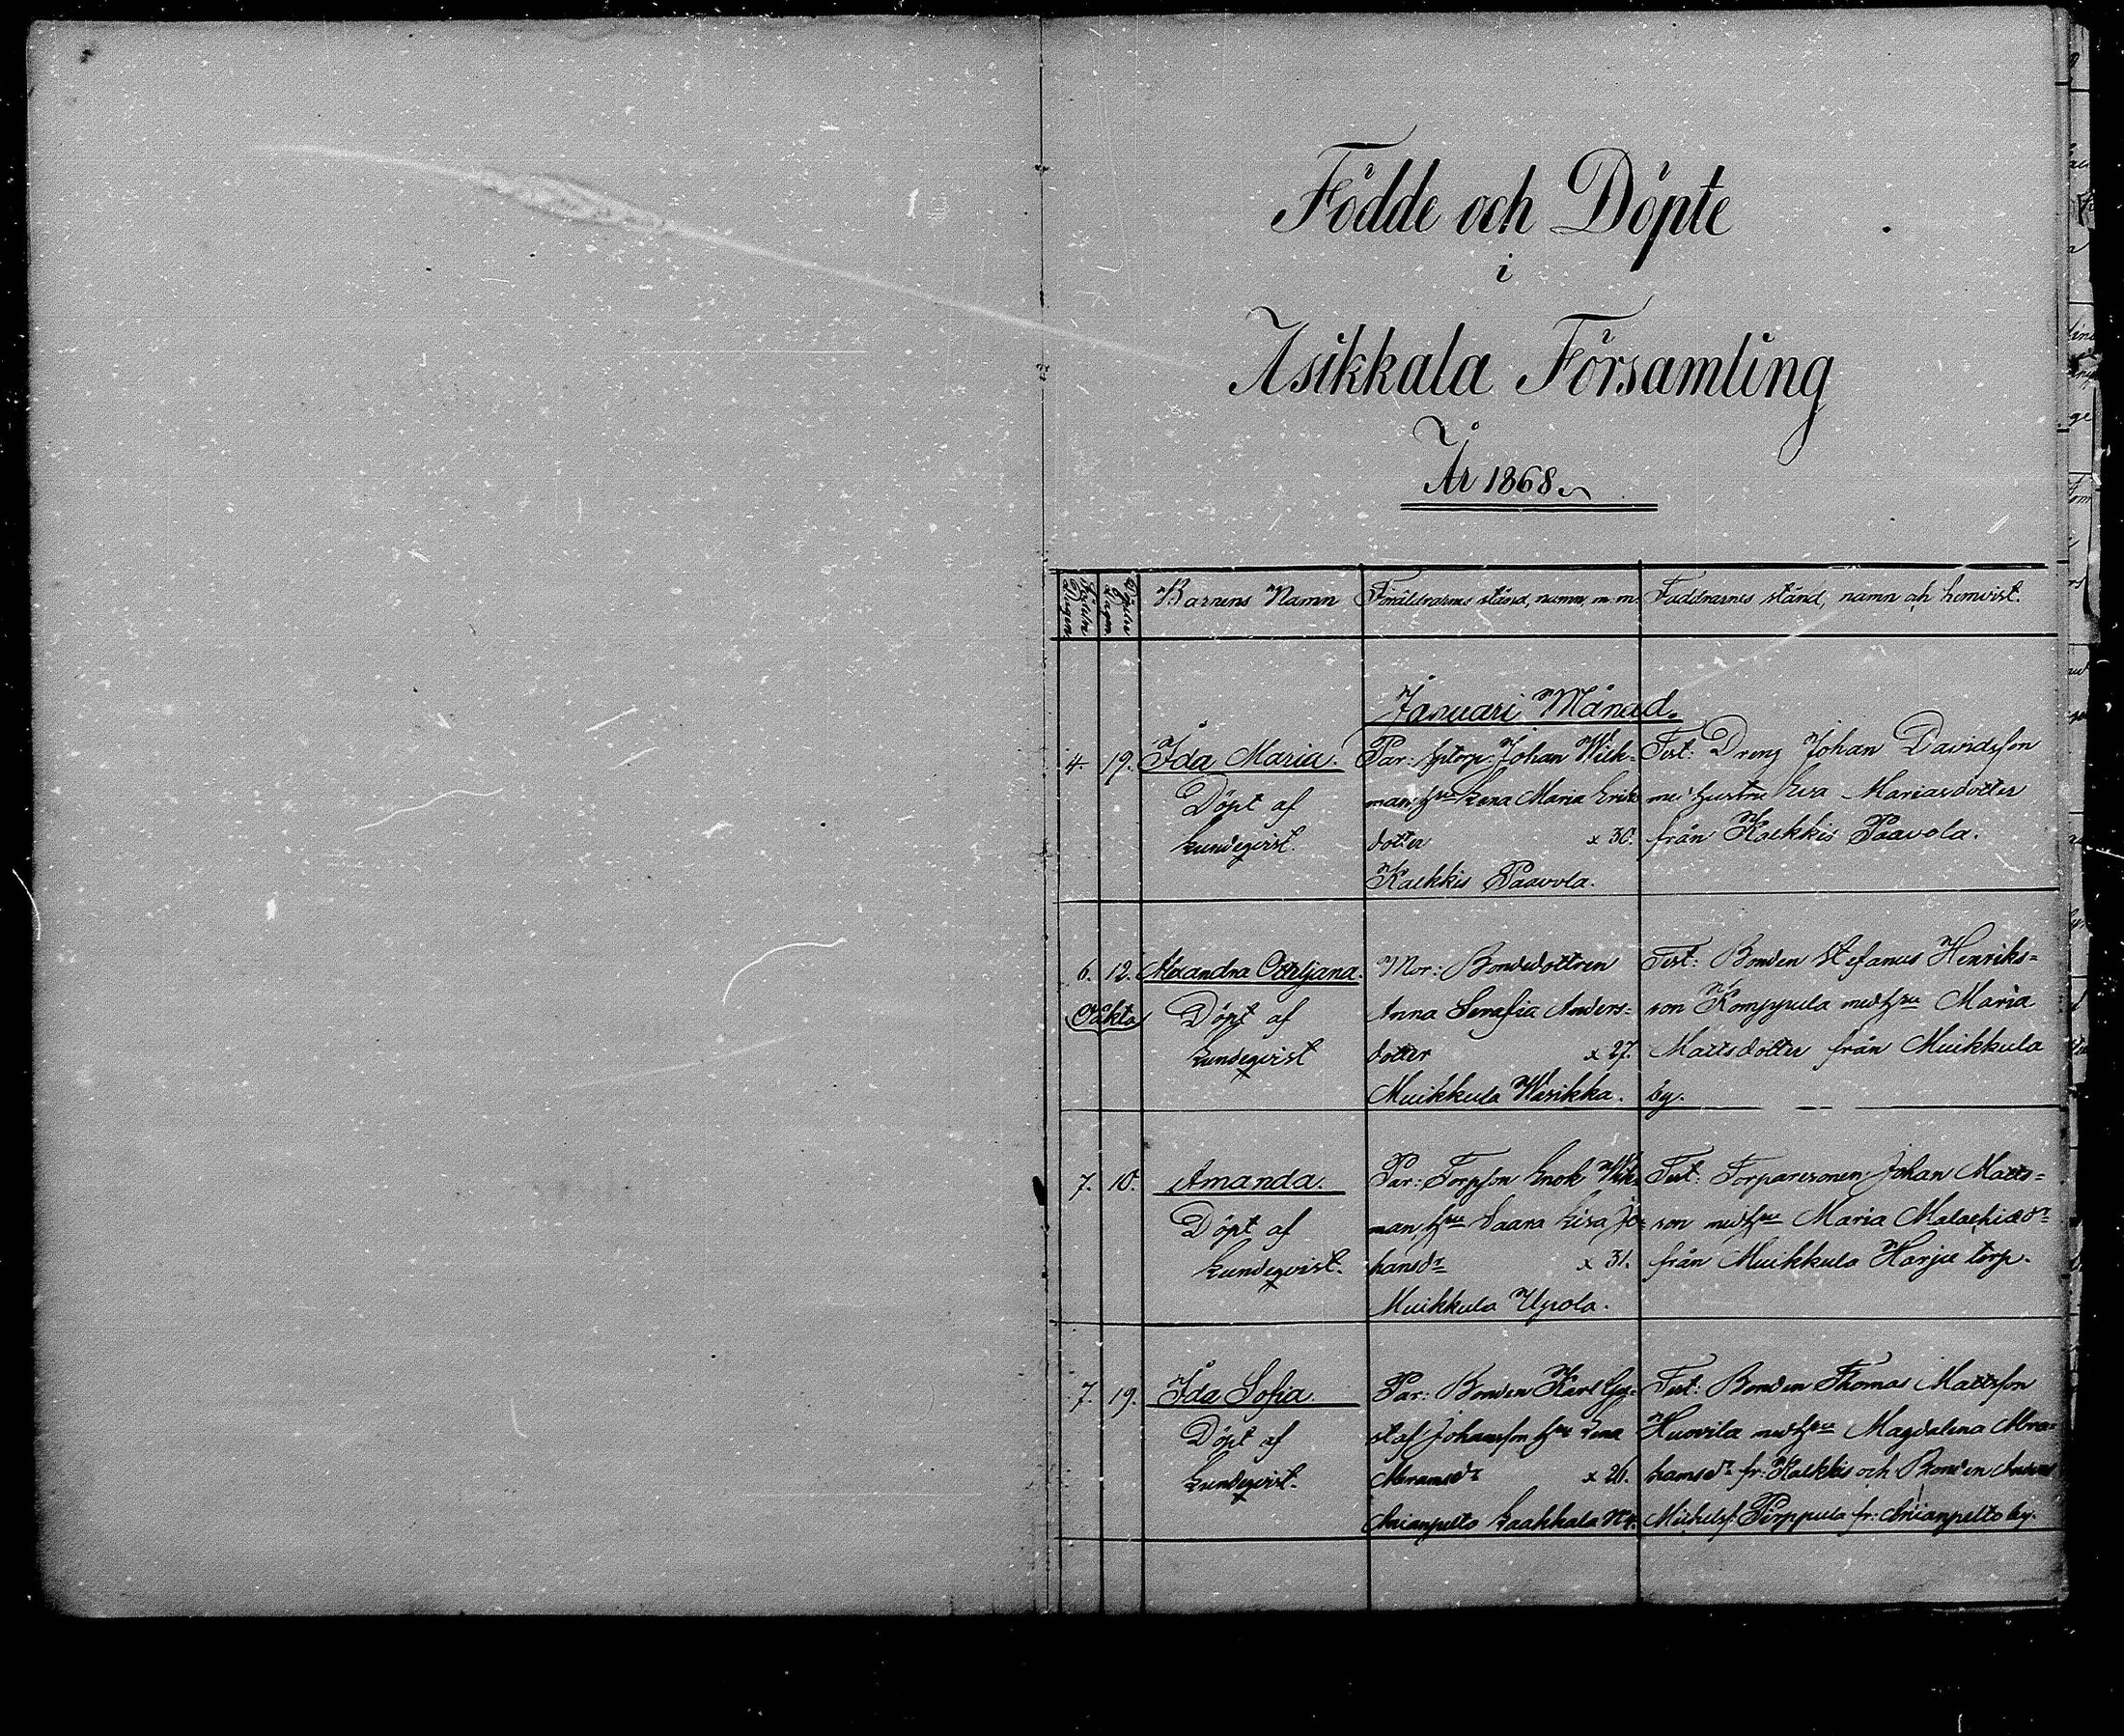 Födde och Döpte
i
Asikkala Församling
År 1868.
Födelse Dagen
Döpelse Dagen
Barnens Namn
Föräldrarnes stånd, namn, m.m.
Faddrarnes stånd, namn och hemvist.
Januari Månad.
4. 19. Ida Maria.
Döpt af
Lundeqvist.
Par: Johan Wick-
man, hu Lena Maria Eriks
dotter x 30.
Kalkkis Paavola.
Test: Dreng Johan Davidsson
med hustru Eva Mariasdotter
från Kalkkis Paavola.
6. 12. Alexandra Ottiljana.
Oäkta
Döpt af
Lundeqvist
Mor: Bondedottren
Anna Serafia Anders=
dotter x 27.
Muikkula Warikka.
Test: Bonden Stefanus Henriks=
son Komppula med hu Maria
Mattsdotter från Muikkula
by.
7. 10. Amanda.
Döpt af
Lundeqvist.
Par: Torpson Enok Wik-
man, hu Saara Lisa Jo-
hansdr x 31.
Muikkula Uprola.
Test: Torparesonen Johan Matts=
son med hu Maria Malachiædr
från Muikkula Harju torp.
7. 19. Ida Sofia.
Döpt af
Lundeqvist.
Par: Bonden Karl Gu=
staf Johansson hu Lena
Abramsdr x 26.
Anianpelto Kaakkala
Test: Bonden Thomas Mattsson
Huovila med hu Magdalena Abra=
hamsdr fr: Kalkkis och Bonden Anders
Michelss: Pirppula fr: Anianpelto by.